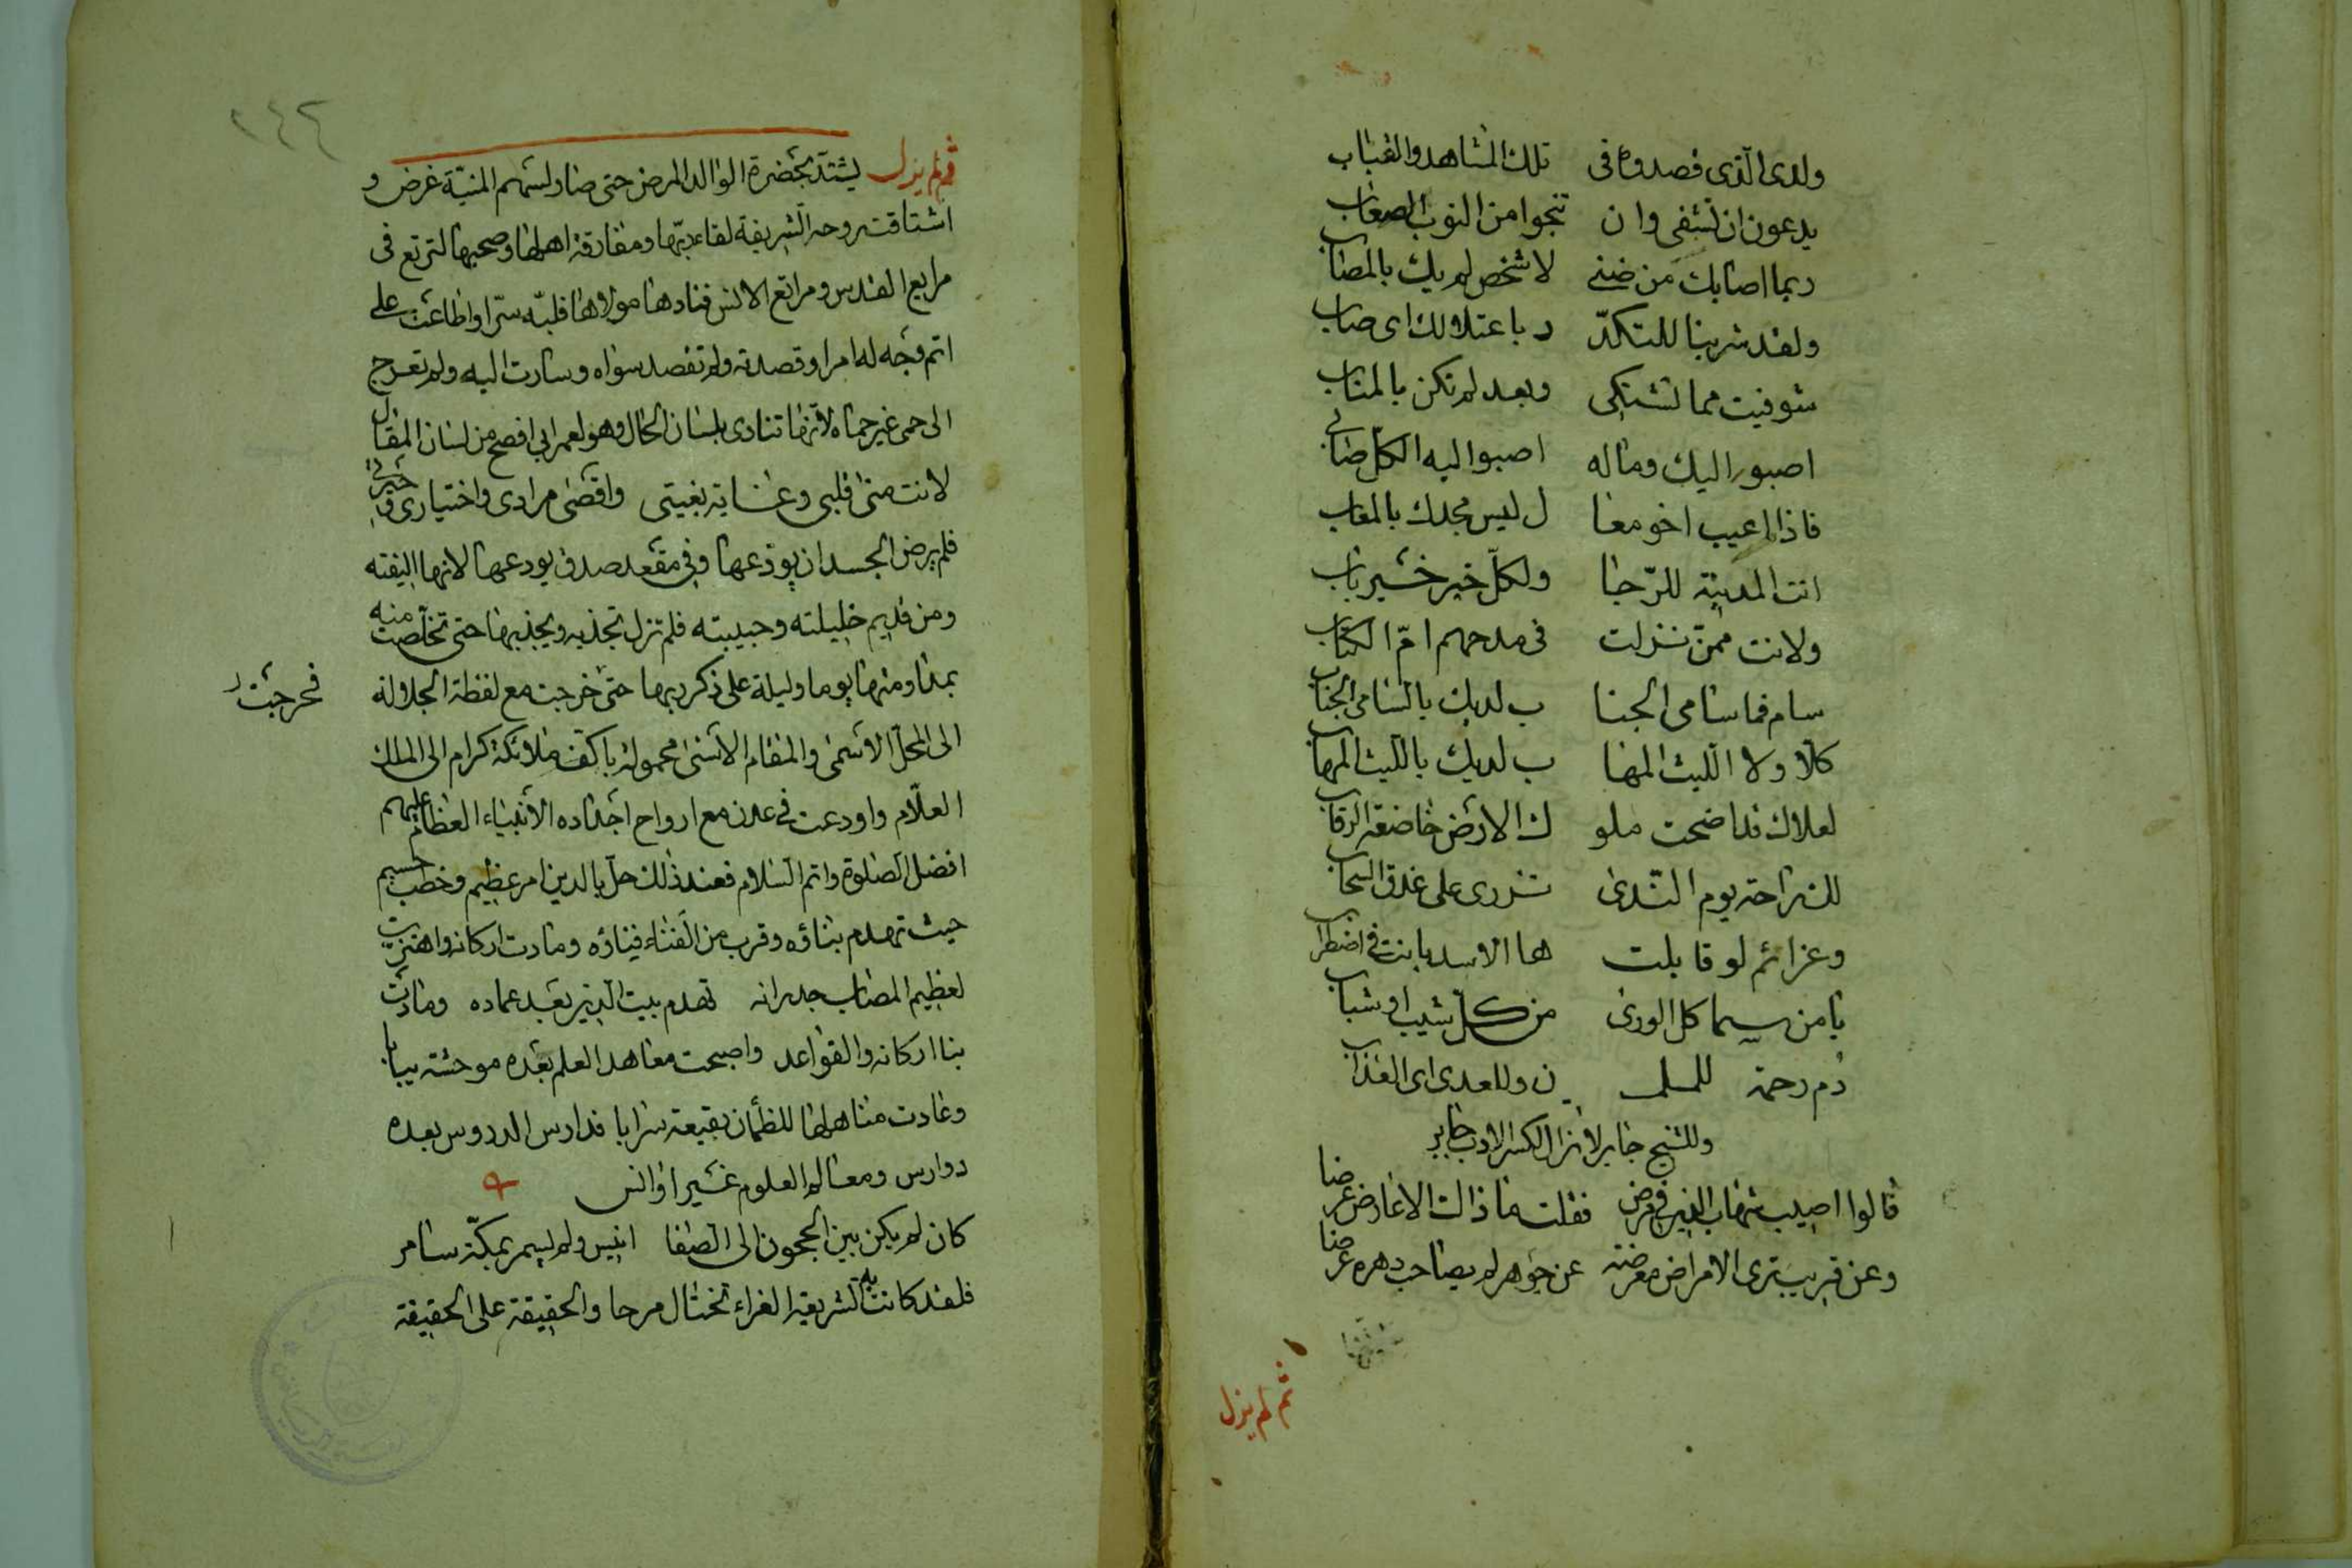 ولدى الذى قصدوه فى تلك المشاهد والقباب
يدعون ان تشفى وان تنجوا من النوب الصعاب
ربما اصابك من ضنى لا شخص لم يك بالمصاب
ولقد شربنا للتكدّ ر باعتلالك اى صاب
شوفيت مما تشتكى وبعد لم تكن بالمناب
اصبو اليك وماله اصبوا اليه الكل صابى
فاذا اعيب اخو معا ل ليس مجدك بالمعاب
انت المدينة للرّجا ولكلّ خير خير باب
ولانت ممّن نزلت فى مدحهم امّ الكتاب
سام فما سامى الجنا ب لديك بالسامى الجناب
كلّا ولا الليث المها ب لديك بالليث المهاب
لعلاك قد اضحت ملو ك الارض خاضعة الرقاب
لك راحة يوم النّدى تزرى على غدق السحاب
وعزائم لو قابلت ها الاسد باتت فى اضطراب
يا من سما كل الورى من كل شيب او شباب
دم رحمة للمسلمـ ين وللعدى اى العذاب
وللشيخ جابر لا زال لكسر الادب جابر
قالوا اصيب شهاب الدين فى مرض فقلت ما ذاك الا عارض عرضا
وعن قريب ترى الامراض معرضة عن جوهر لم يصاحب دهره عرضا
ثم لم يزل
٢٤٤
ثم لم يزل يشتد بحضرة الوالد المرض حتى صار لسهم المنيّة غرض و
اشتاقت روحه الشريفة لقاء ربّها ومفارقة اهلها وصحبها لترتع فى
مرابع القدس ومراتع الانس فنادها مولاها فلبّه سرّا واطاعت على
اتم وجه له امرا وقصدته ولم تقصد سواه وسارت اليه ولم تعرج
الى حمى غير حماه لانها تنادى بلسان الحال وهو لعمر ابى افصح من لسان المقال
لانت منى قلبى وغاية بغيتى واقصى مرادى واختيارى وخيرتى
فلم يرض الجسد ان يودعها وفى مقعد صدق يودعها لانها اليفته
ومن قديم خليلته وحبيبته فلم تزل تجذبه ويجذبها حتى تخلّصت منه
بمداومتها يوما وليلة على ذكر ربها حتى خرجت مع لفظة الجلالة
فخرجت
الى المحلّ الاسمى والمقام الاسنى محمولة باكف ملائكة كرام الى الملك
العلّام واودعت فى عدن مع ارواح اجداده الانبياء العظام عليهم
افضل الصلوة واتم السلام فعند ذلك حل بالدين امر عظيم وخطب جسيم
حيث تهدم بناؤه وقرب من الفناء فناؤه ومادت اركانه واهتزت
لعظيم المصاب جدرانه تهدم بيت الدين بعد عماده ومادت
بنا اركانه والقواعد واصبحت معاهد العلم بعده موحشة يبابا
وغادت مناهلها للظمآن بقيعة سرابا فدارس الدروس بعده
دوارس ومعالم العلوم غير اوانس
كان لم يكن بين الحجون الى الصفا انيس ولم يسمر بمكّة سامر
فلقد كانت به الشريعة الغراء تختال مرحا والحقيقة على الحقيقة